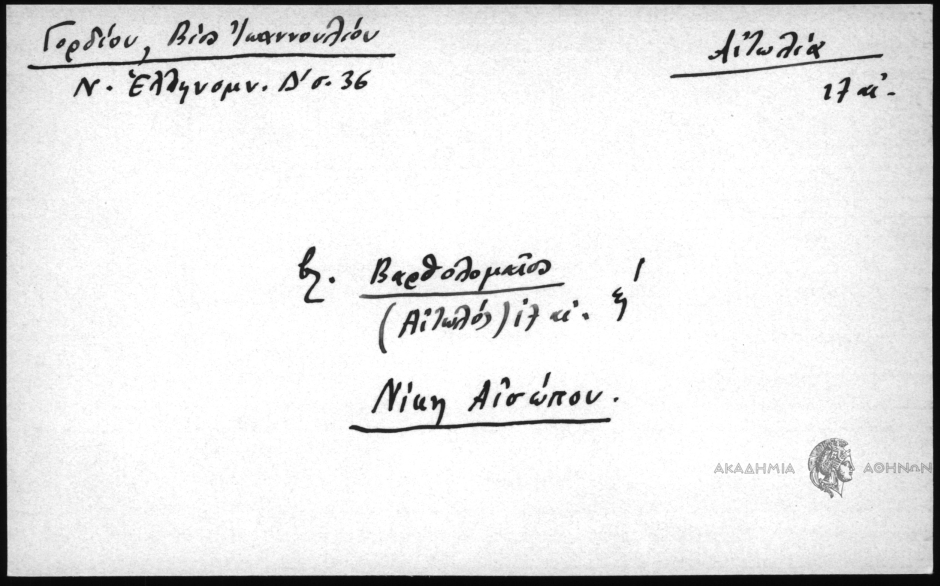 Γορδίου, Βίος Ἰωαννουλίου
Αἰτωλία
Ν. Ἑλληνομν. Δ' σ. 36
17 αἰ.
βλ. Βαρθολομαῖος
(Αἰτωλός) 17 αἰ.
Νίκη Αἰσώπου.
ΑΚΑΔΗΜΙΑ ΑΘΗΝΩΝ